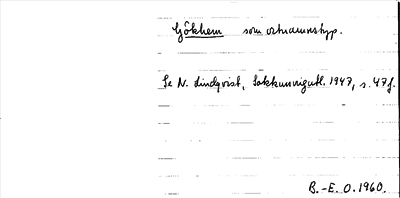 Gökhem som ortnamnstyp.
Se N. Lindqvist, Sakkunnigutl. 1947, s. 47f.
B.-E. O. 1960.